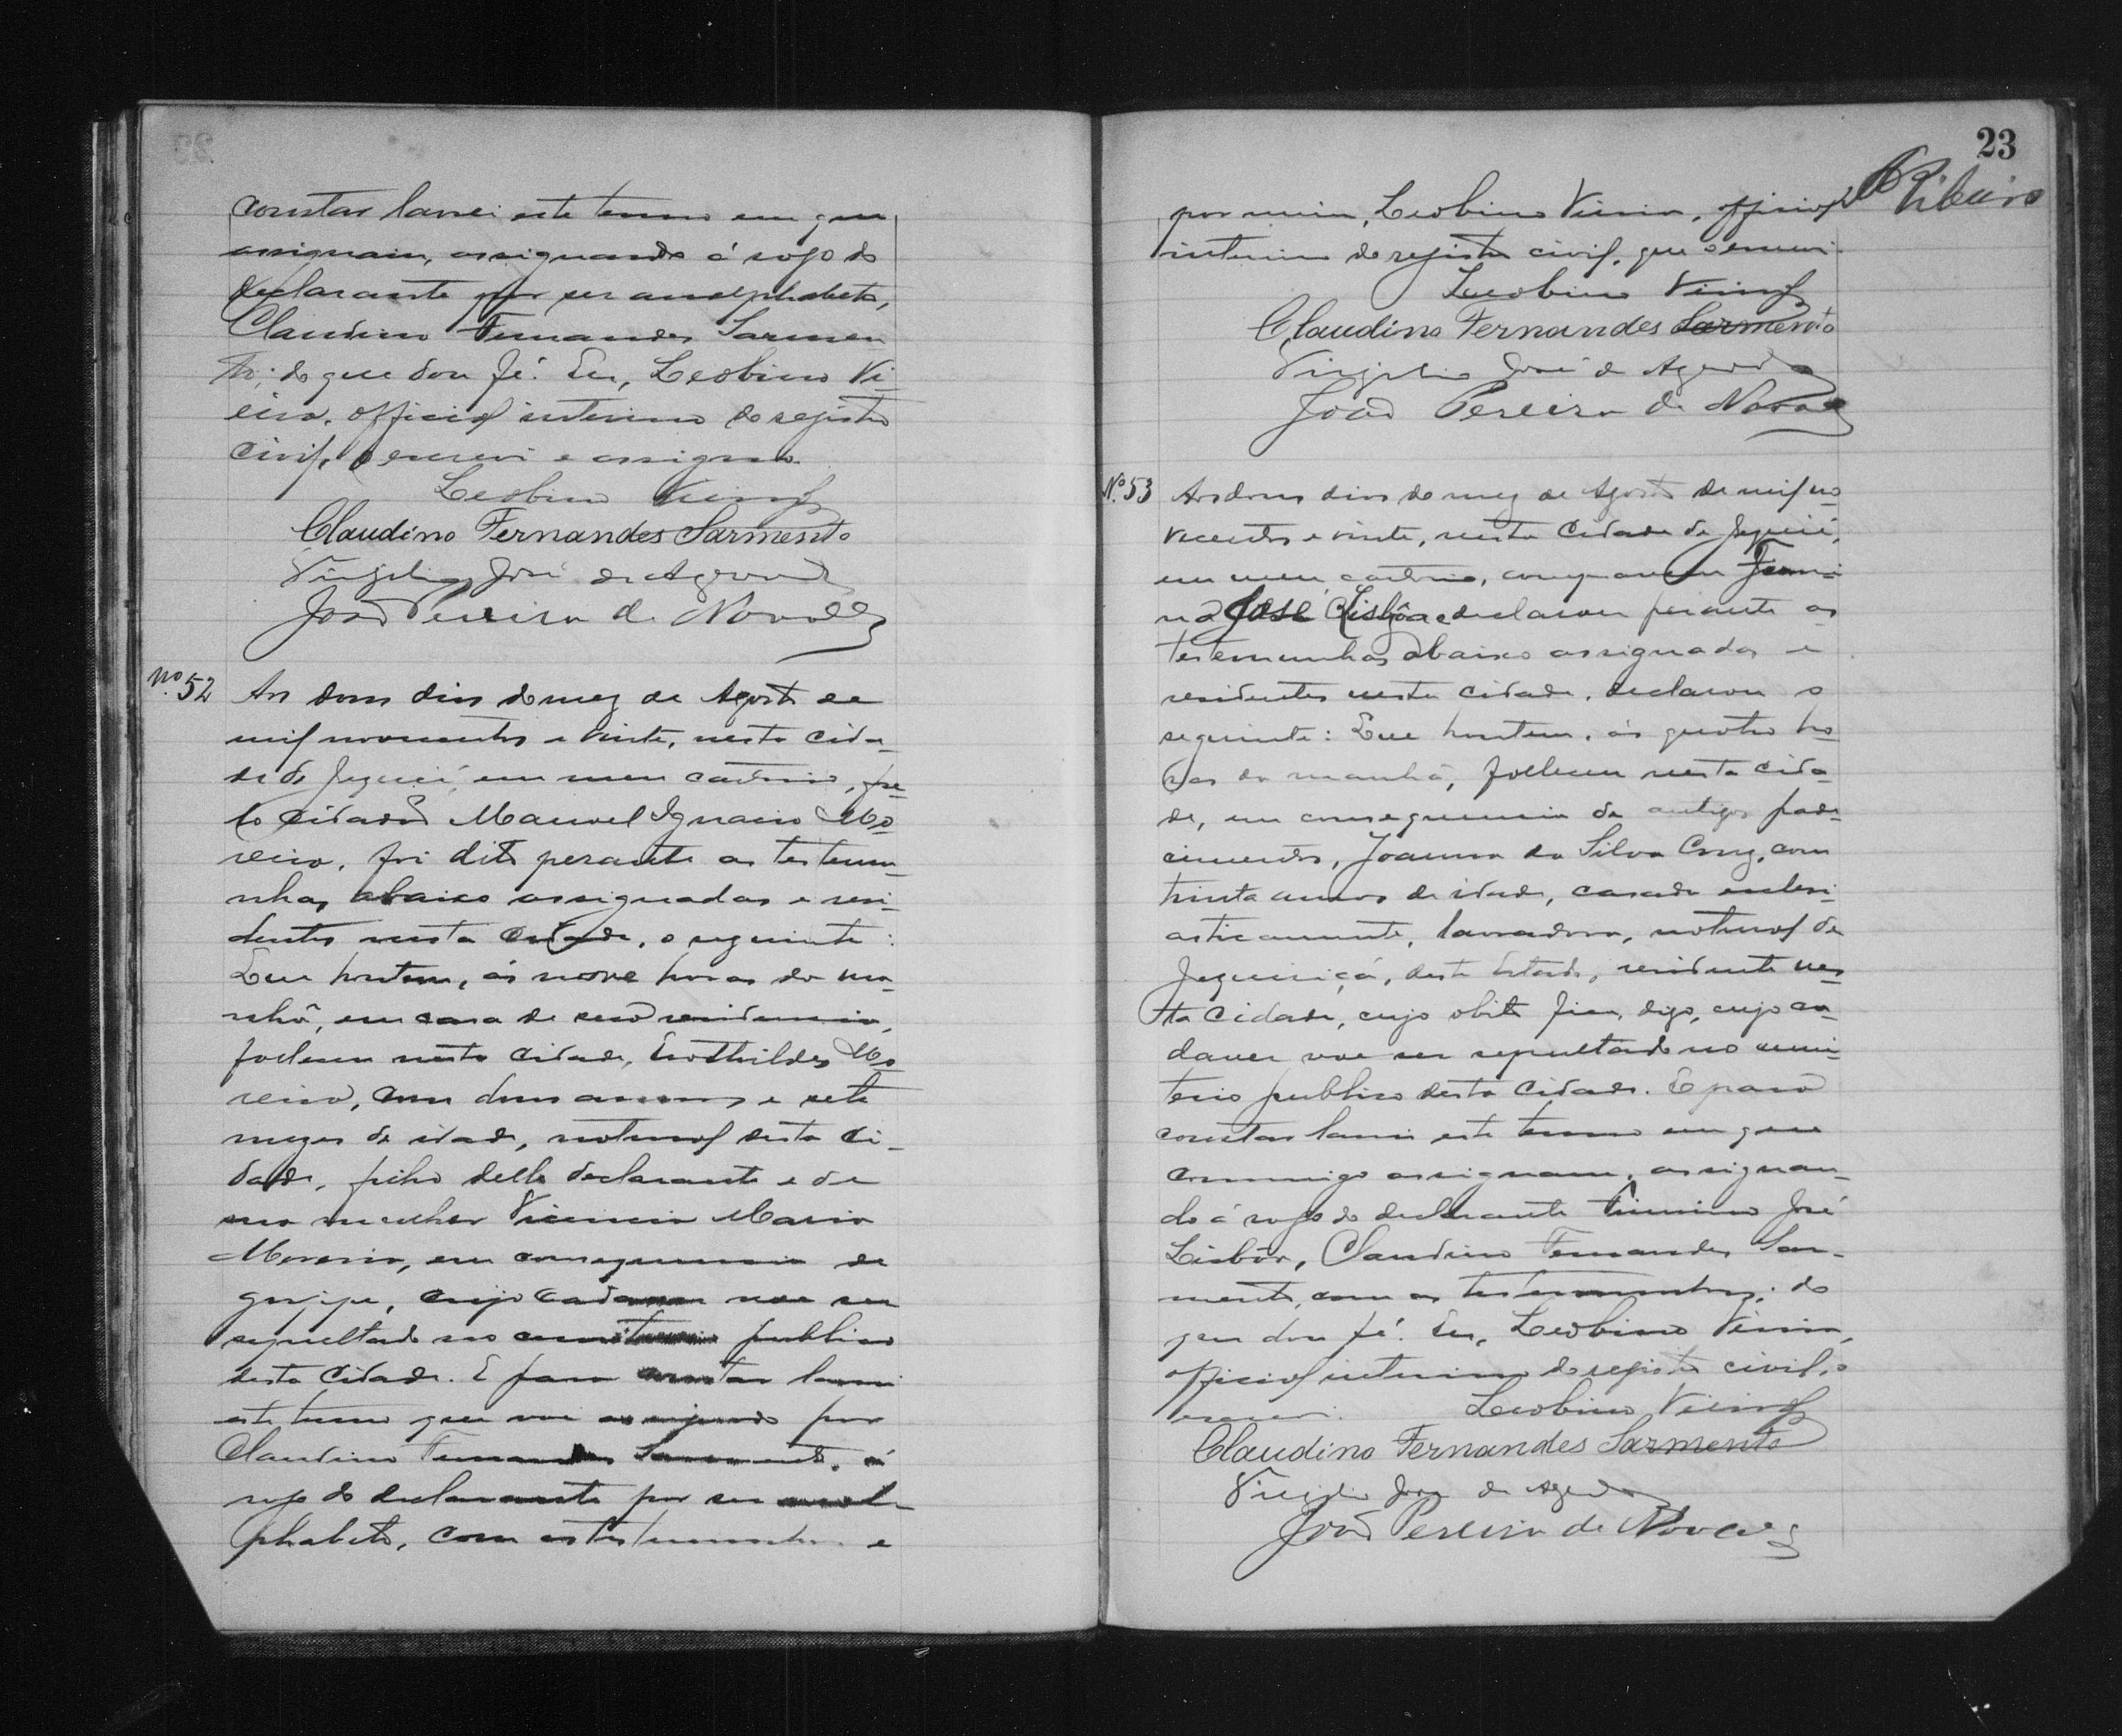 constar lavrei este termo em que
assignam, assignando á rogo do
declarante por ser analphabeto,
Claudino Fernandes Sarmen
to; do que dou fé. Eu, Leobino Vi-
eira, official interino do registro
civil, o escrevi e assigno.
Leobino Vieira
Claudino Fernandes Sarmento
Virgilio José de Azevedo
João Pereira de Novaes
Nº 52
Aos dous dias do mez de Agosto de
mil novecentos e vinte, nesta cida-
de de Jequié, em meu cartorio, pe-
lo cidadão Manoel Ignacio Mo-
reira, foi dito perante as testemu-
nhas abaixo assignadas e resi-
dentes nesta cidade, o seguinte:
Que hontem, ás nove horas da ma-
nhã, em casa de sua residencia,
falleceu nesta cidade, Mo-
reira, com dous annos e sete
mezes de idade, natural desta ci-
dade, filho delle declarante e de
sua mulher Vicencia Maria
Moreira, em consequencia de
grippe, cujo cadaver vae ser
sepultado no cemiterio publico
desta cidade. E para constar lavrei
este termo que vai assignado por
Claudino Fernandes Sarmento, á
rogo do declarante por ser anal-
phabeto, com as testemunhas e
23
Ribeiro
por mim, Leobino Vieira, official
interino do registro civil, que o escrevi.
Leobino Vieira
Claudino Fernandes Sarmento
Virgilio José de Azevedo
João Pereira de Novaes
Nº 53
Aos dous dias do mez de Agosto de mil no-
vecentos e vinte, nesta cidade de Jequié,
em meu cartorio, compareceu Firmi-
no José Lisbôa e declarou perante as
testemunhas abaixo assignadas e
residentes nesta cidade, declarou o
seguinte: Que hontem, ás quatro ho-
ras da manhã, falleceu nesta cida-
de, em consequencia de antigos pade-
cimentos, Joanna da Silva Cruz, com
trinta annos de idade, casada eclesi-
asticamente, lavradora, natural de
Jequiriçá, deste Estado, residente nes-
ta cidade, cujo obito fica, digo, cujo ca-
daver vae ser sepultado no cemi-
terio publico desta cidade. E para
constar lavrei este termo em que
commigo assignam, assignan-
do á rogo do declarante Firmino José
Lisbôa, Claudino Fernandes Sar-
mento, com as testemunhas; do
que dou fé. Eu, Leobino Vieira,
official interino do registro civil, o
escrevi. Leobino Vieira
Claudino Fernandes Sarmento
Virgilio José de Azevedo
João Pereira de Novaes